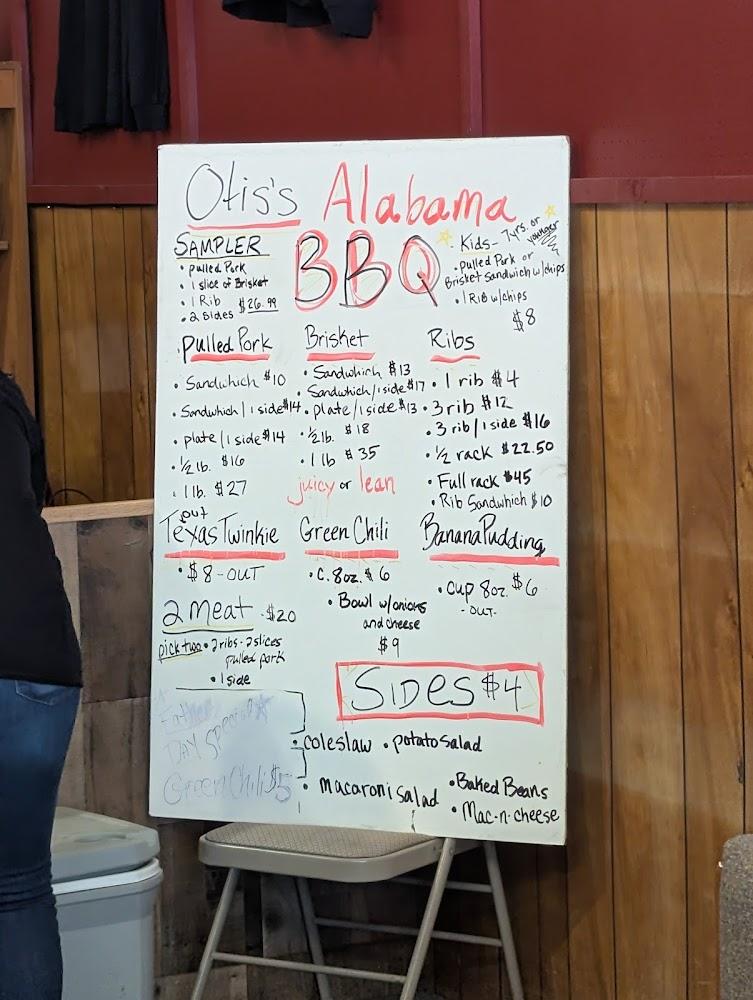 Otis's Alabama
BBQ
SAMPLER
• pulled Pork
• 1 slice of Brisket
• 1 Rib
• 2 sides $26.99
• Kids- 7yrs. or younger
• pulled Pork or
Brisket Sandwich w/chips
• 1 Rib w/chips
$8
Pulled Pork
• Sandwhich $10
• Sandwhich/1 side $14
• plate/1 side $14
• 1/2 lb. $16
• 1 lb. $27
out
Brisket
• Sandwhich $13
• Sandwhich/1 side $17
• plate/1 side $13
• 1/2 lb. $18
• 1 lb $35
juicy or lean
Ribs
• 1 rib $4
• 3 rib $12
• 3 rib/1 side $16
• 1/2 rack $22.50
• Full rack $45
• Rib Sandwhich $10
Texas Twinkie
• $8 - OUT
Green Chili
• C. 8oz. $6
• Bowl w/onions
and cheese
$9
Banana Pudding
• Cup 8oz. $6
- OUT -
2 Meat - $20
pick two • 2 ribs - 2 slices
pulled pork
• 1 side
Father
DAY Special
Green Chili $5
SIDES $4
• coleslaw • potato salad
• macaroni salad • Baked Beans
• Mac-n-cheese